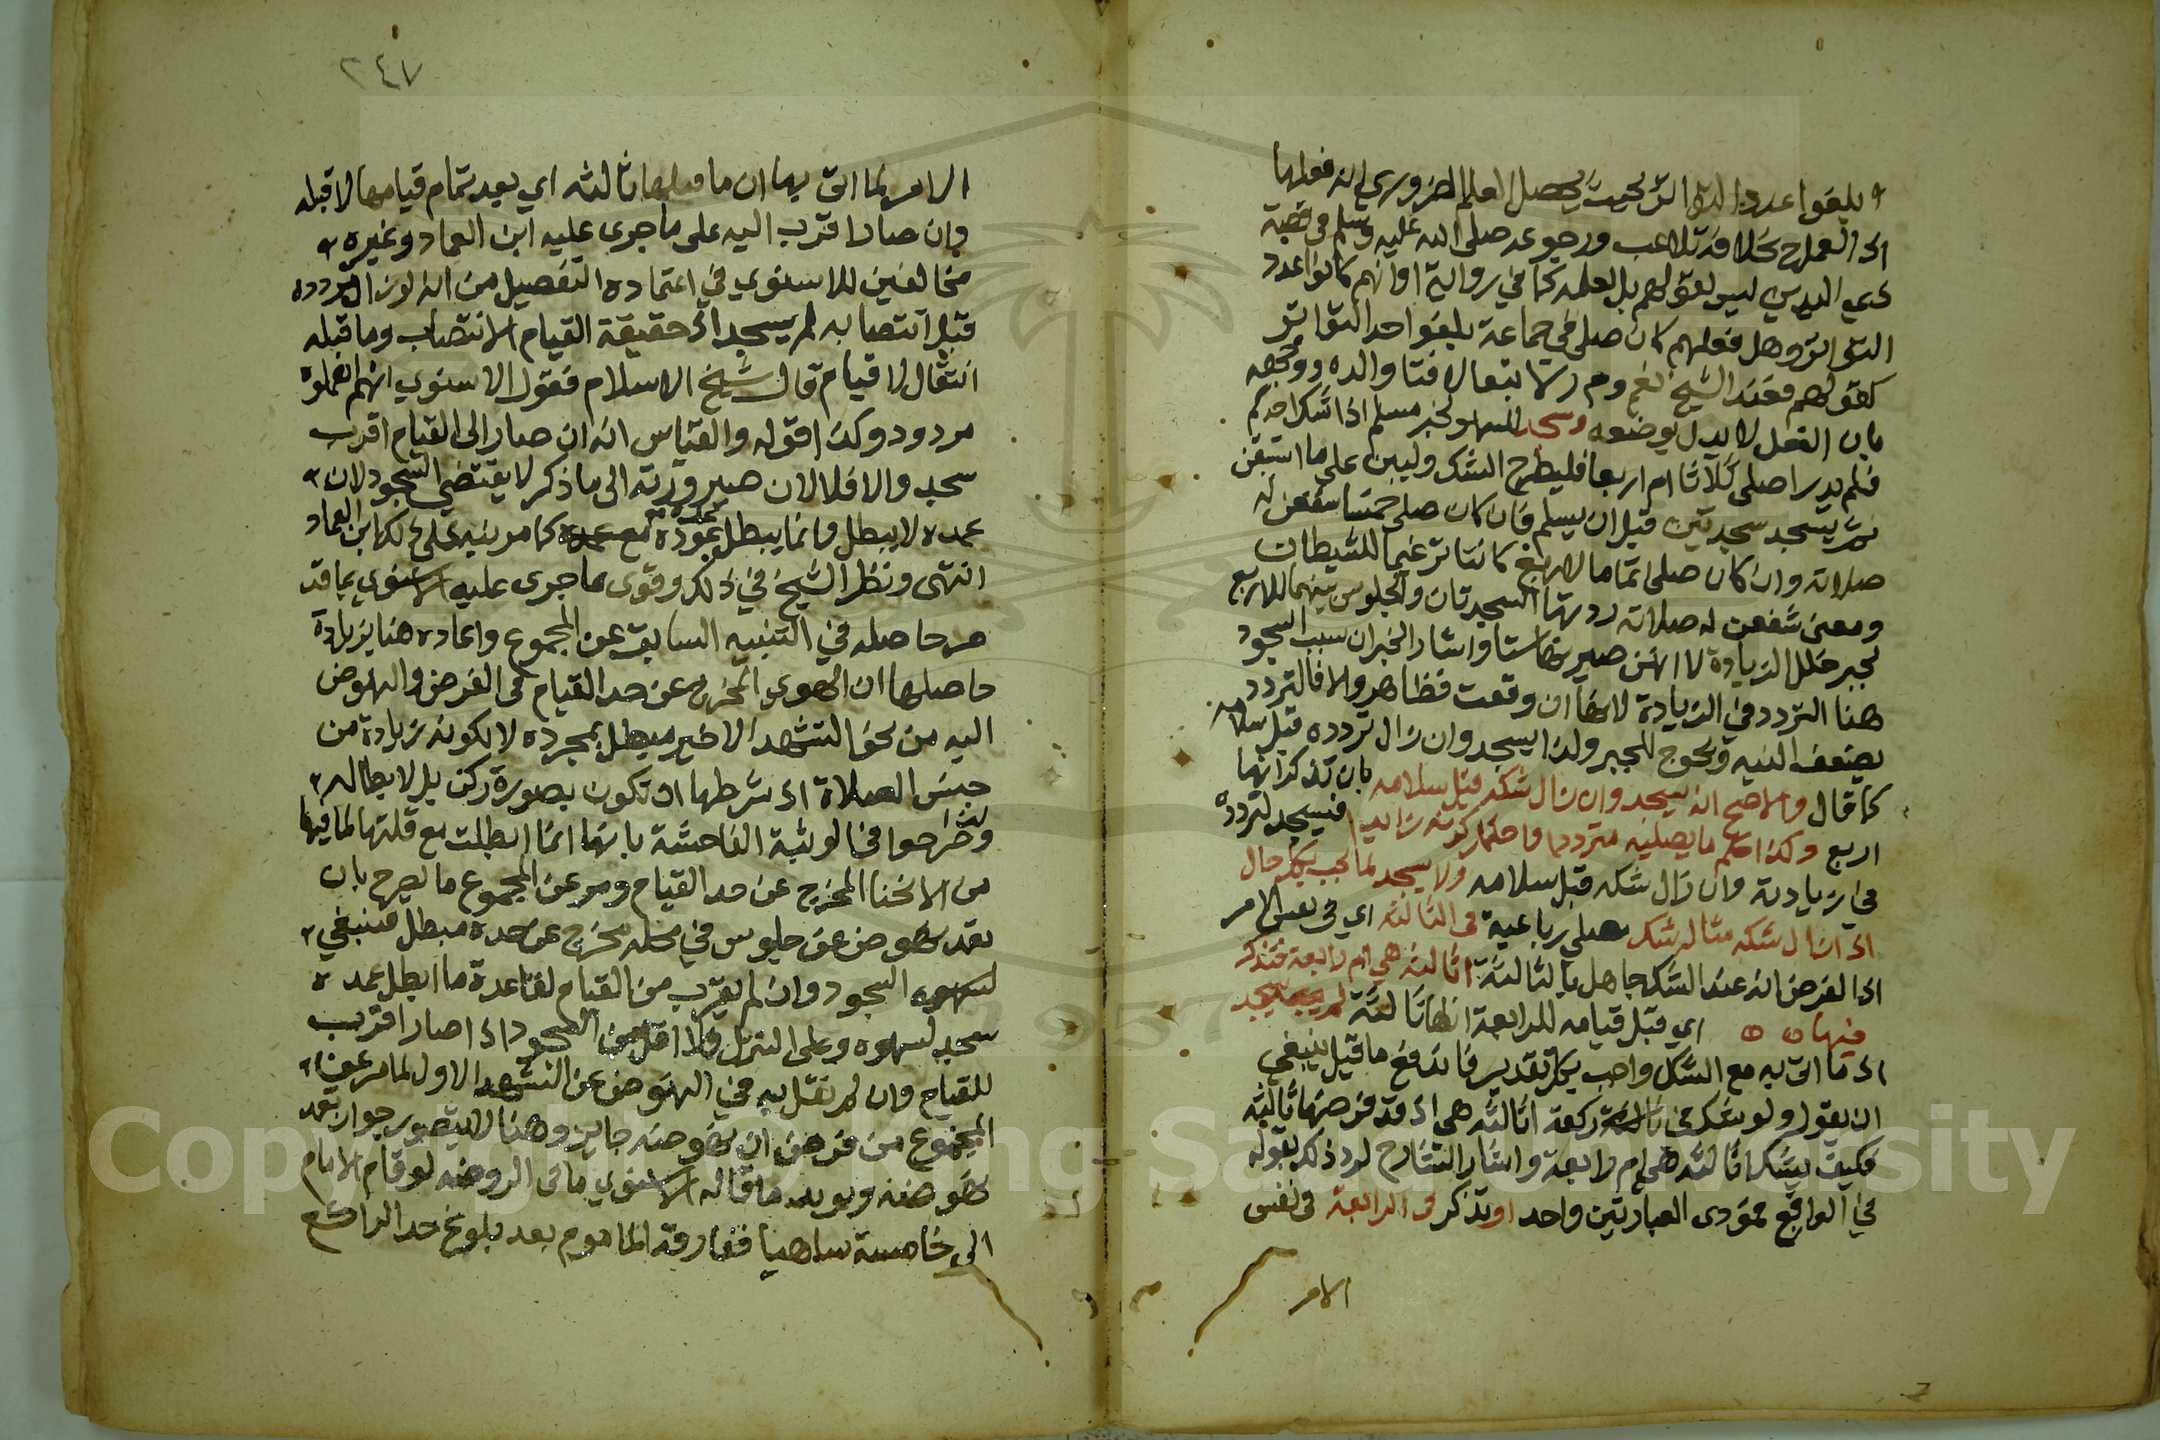 يبلغوا عدد التواتر بحيث يحصل العلم الضروري انه فعلها
اذ العمل ح بخلافه تلاعب ورجوعه صلى الله عليه وسلم في قصة
ذي اليدين ليس لقولهم بل لعلمه كما في رواية او انهم كانوا عدد
التواتر وهل فعلهم كان صلى في جماعة بلغوا حد التواتر
كقولهم فعند الشيخ نعم وم ر لا تبعا لافتا والده ووجهه
بان الفعل لا يدل بوضعه وسجد للسهو لخبر مسلم اذا شك احدكم
فلم يدر اصلى ثلاثا ام اربعا فليطرح الشك وليبن على ما استيقن
ثم يسجد سجدتين قبل ان يسلم فان كان صلى خمسا شفعن له
صلاته وان كان صلى تماما لاربع كانتا ترغيما للشيطان
ومعنى شفعن له صلاته ردتها السجدتان والجلوس بينهما للاربع
لجبر خلل الزيادة لا انهن صيرنها ستا واشار الخبر ان سبب السجود
هنا التردد في الزيادة لانها ان وقعت فظاهر والا فالتردد
يضعف النيه ويحوج للجبر ولذا يسجد وان زال تردده قبل سلامه
كما قال والاصح انه يسجد وان زال شكه قبل سلامه بان تذكر انها
اربع وكذا حكم ما يصليه مترددا واحتمل كونه زايدا فيسجد لتردده
في زيادته وان زال شكه قبل سلامه ولا يسجد لما يجب بكل حال
اذا زال شكه مثاله شك مصلي رباعية في الثالثة اي في نفس الامر
اذ الفرض انه عند الشك جاهل بالثالثة اثالثة هي ام رابعة فتذكر
فيها اي قبل قيامه للرابعة انها ثالثة لم يسجد
اذ ما اتى به مع الشك واجب بكل تقدير فاندفع ما قيل ينبغي
ان يقول ولو شك في ركعة اثالثة هي اذ قد فرضها ثالثة
فكيف يشك اثالثة هي ام رابعة واشار الشارح لرد ذلك بقوله
في الواقع فمؤدى العبارتين واحد او تذكر في الرابعة في نفس
الامر
٢٤٧
الامر لما اتى بها ان ما قبلها ثالثه اي بعد تمام قيامها لا قبله
وان صار اقرب اليه على ما جرى عليه ابن العماد وغيره
مخالفين للاسنوي في اعتماده التفصيل من انه لو زال تردده
قبل انتصابه لم يسجد اذ حقيقة القيام الانتصاب وما قبله
انتقال لا قيام قال شيخ الاسلام فقول الاسنوي انهم اهملوه
مردود وكذا قوله والقياس انه ان صار الى القيام اقرب
سجد والا فلا لان صيرورته الى ما ذكر لا يقتضي السجود لان
عمده لا يبطل وانما يبطل عوده مع عمده كما مر نبه على ذلك ابن العماد
انتهى ونظر الشيخ في ذلك وقوى ما جرى عليه الاسنوي بما قد
مر حاصله في التنبيه السابق عن المجموع واعاده هنا بزيادة
حاصلها ان الهوي المخرج عن حد القيام في الفرض والنهوض
اليه من نحو التشهد الاخير مبطل بمجرده لا لكونه زيادة من
جنس الصلاة اذ شرطها ان تكون بصورة ركن بل لابطاله
وصرحوا في الوثبة الفاحشة بانها انما ابطلت مع قلتها لما فيها
من الانحنا المخرج عن حد القيام ومر عن المجموع ما يصرح بان
تعمد نهوض عن جلوس في محله مخرج عن حده مبطل فينبغي
لسهوه السجود وان لم يقرب من القيام لقاعدة ما ابطل عمده
سجد لسهوه وعلى التنزل فلا اقل من السجود اذا صار اقرب
للقيام وان لم نقل به في النهوض عن التشهد الاول لما مر عن
المجموع من فرض ان نهوضه جايز وهنا لا يتصور جواز تعمد
نهوضه ويؤيد ما قاله الاسنوي ما في الروضه لو قام الامام
الى خامسة ساهيا ففارقه الماموم بعد بلوغ حد الراكع
Copyright © King Saud University
1957